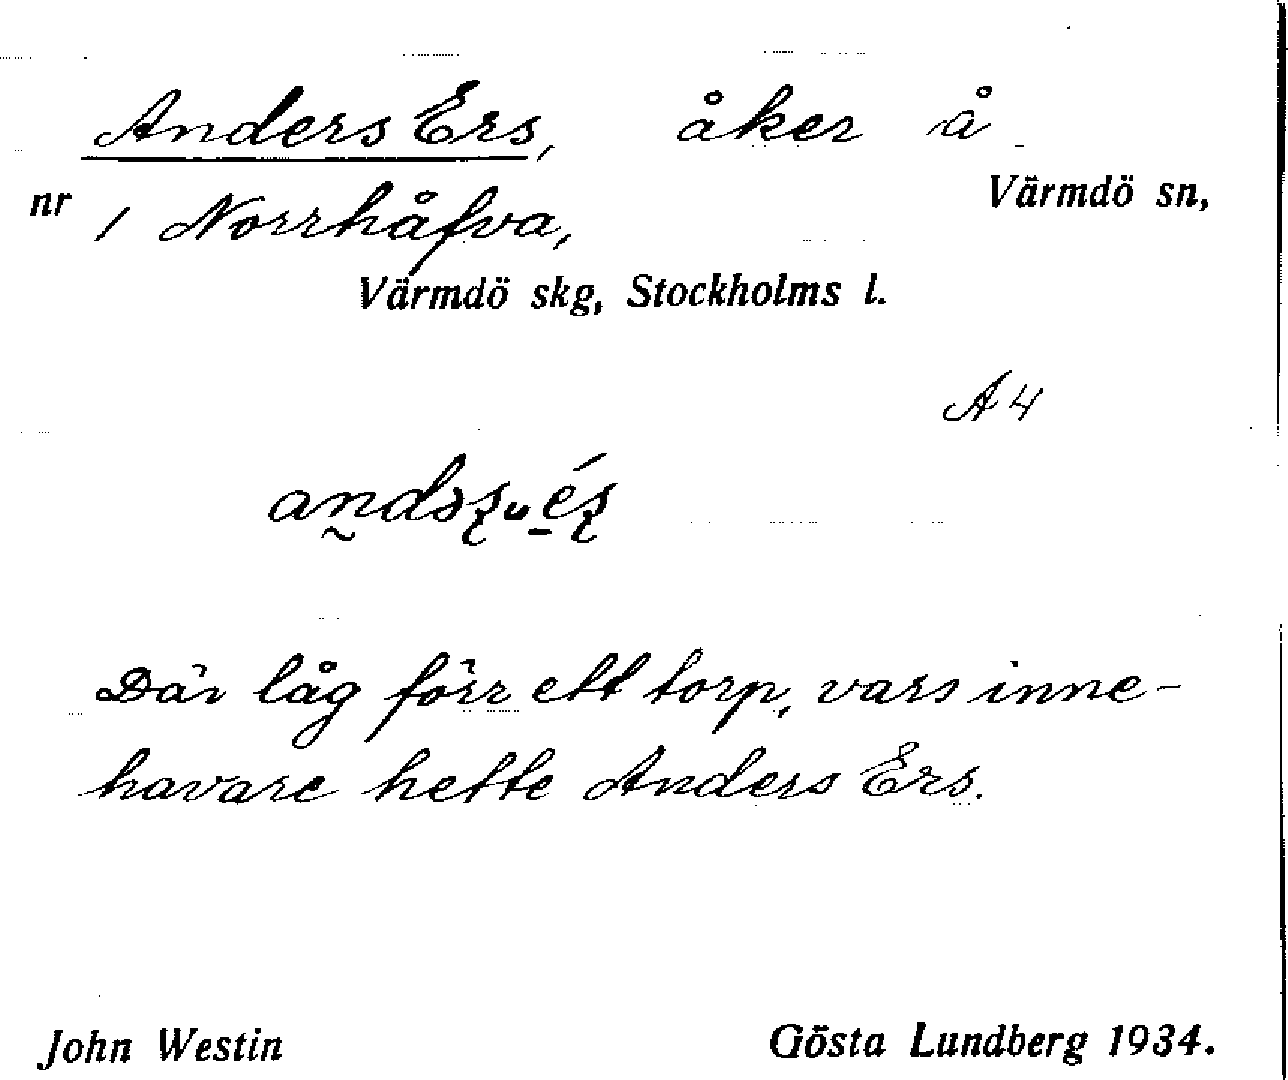 Anders Ers, åker å
nr 1 Norrhåfva, Värmdö sn,
Värmdö skg, Stockholms l.
A 4
Där låg förr ett torp, vars inne-
havare hette Anders Ers.
John Westin Gösta Lundberg 1934.